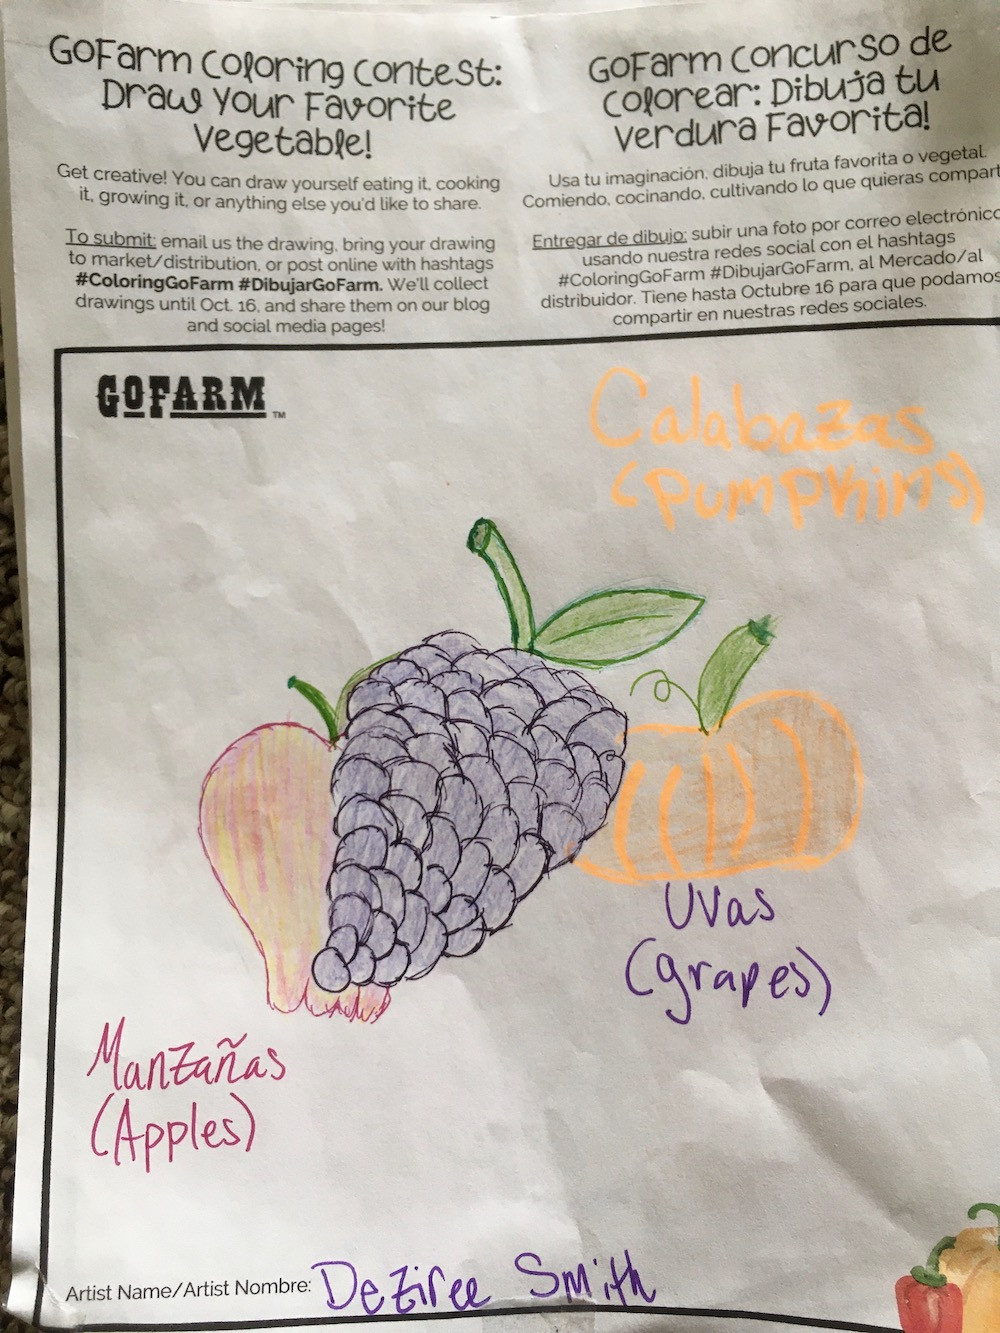 GoFarm Coloring Contest:
Draw Your Favorite
Vegetable!
Get creative! You can draw yourself eating it, cooking
it, growing it, or anything else you'd like to share.
To submit: email us the drawing, bring your drawing
to market/distribution, or post online with hashtags
#ColoringGoFarm #DibujarGoFarm. We'll collect
drawings until Oct. 16, and share them on our blog
and social media pages!
GoFarm Concurso de
Colorear: Dibuja tu
Verdura Favorita!
Usa tu imaginación, dibuja tu fruta favorita o vegetal.
Comiendo, cocinando, cultivando lo que quieras compart
Entregar de dibujo: subir una foto por correo electrónico
usando nuestra redes social con el hashtags
#ColoringGoFarm #DibujarGoFarm, al Mercado/al
distribuidor. Tiene hasta Octubre 16 para que podamos
compartir en nuestras redes sociales.
GOFARM™
Calabazas
(Pumpkins)
Uvas
(grapes)
Manzañas
(Apples)
Artist Name/Artist Nombre: Deziree Smith